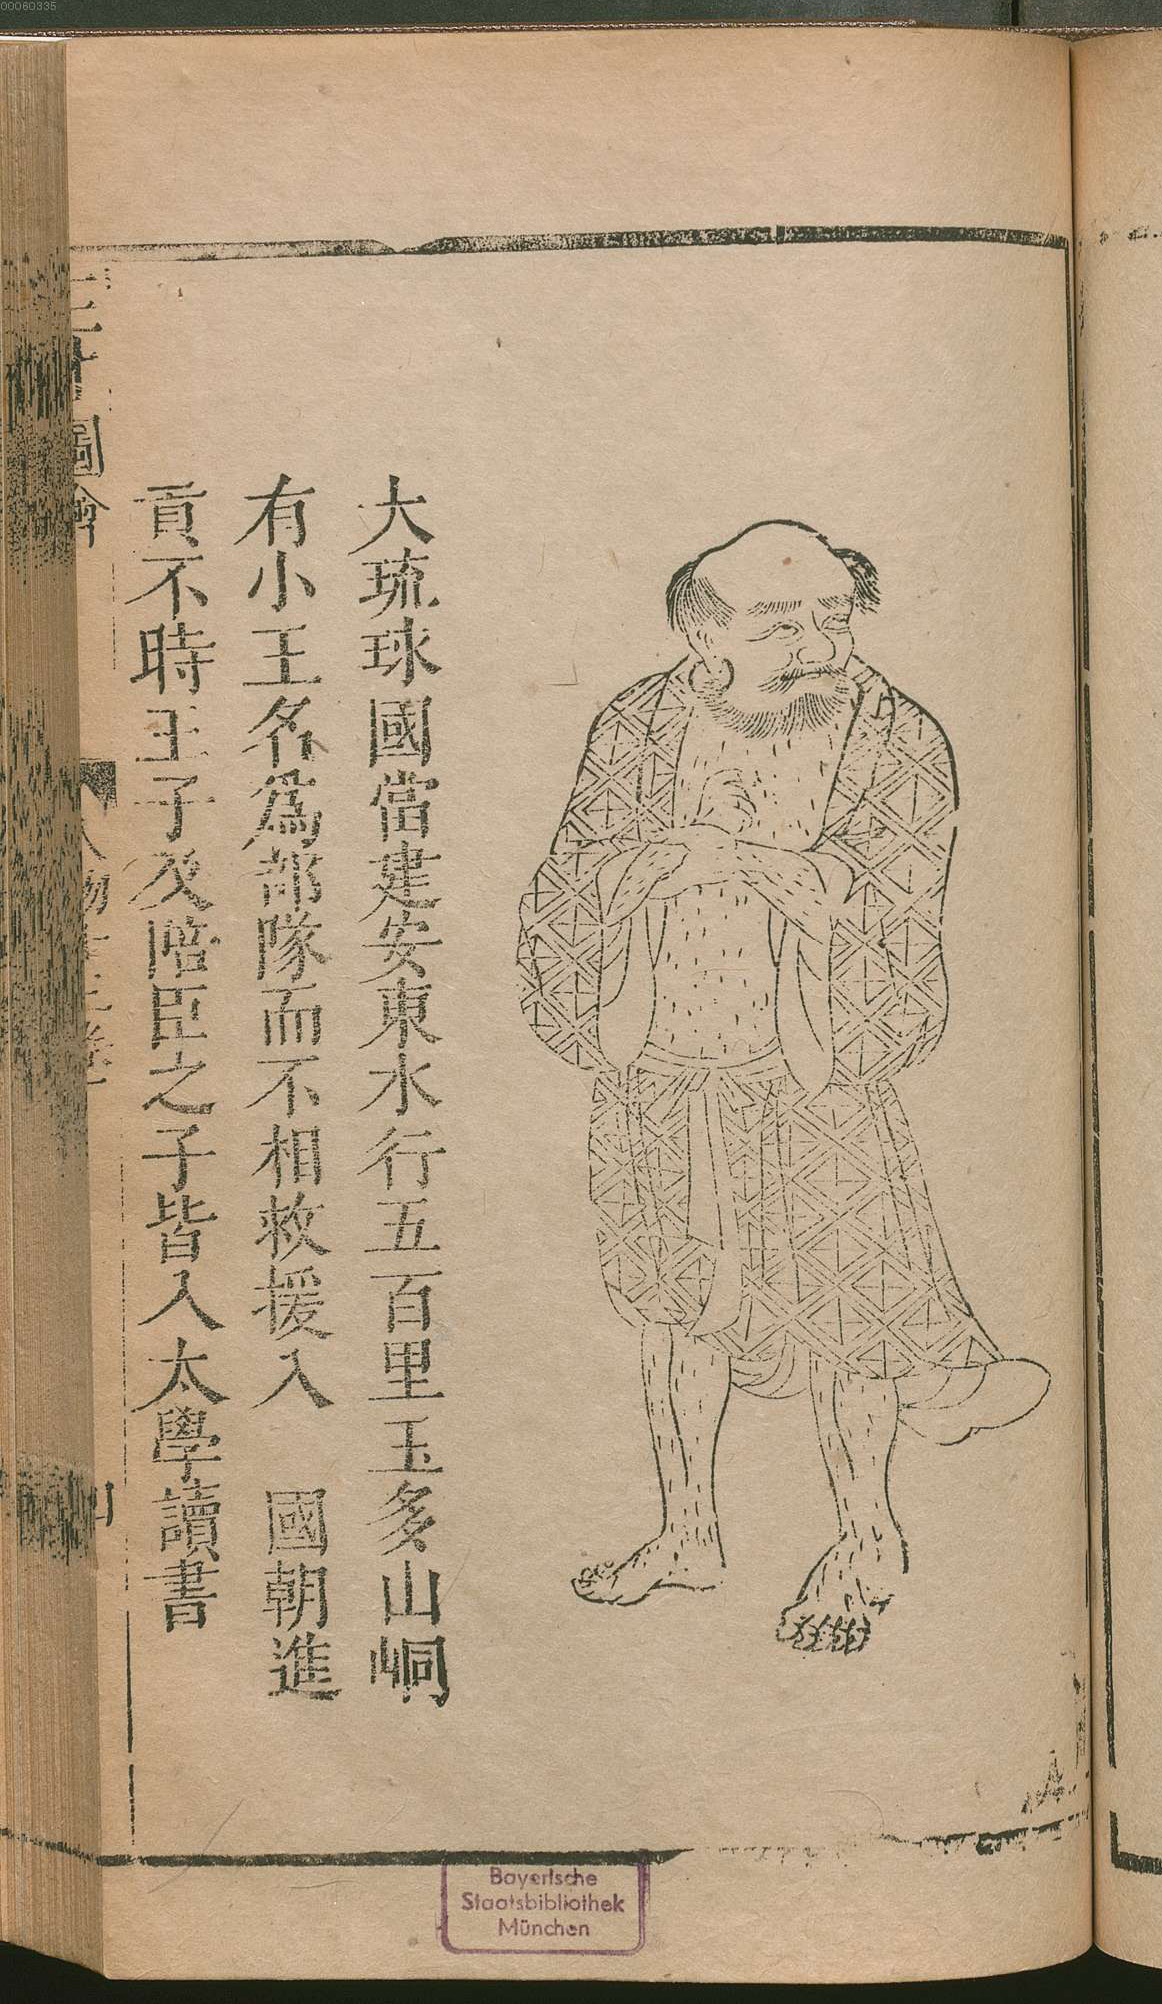 00060335
大琉球國當建安東水行五百里玉多山峒
有小王名爲部隊而不相救援入　國朝進
貢不時王子及陪臣之子皆入太學讀書
三才圖會
人物
Bayerische
Staatsbibliothek
München